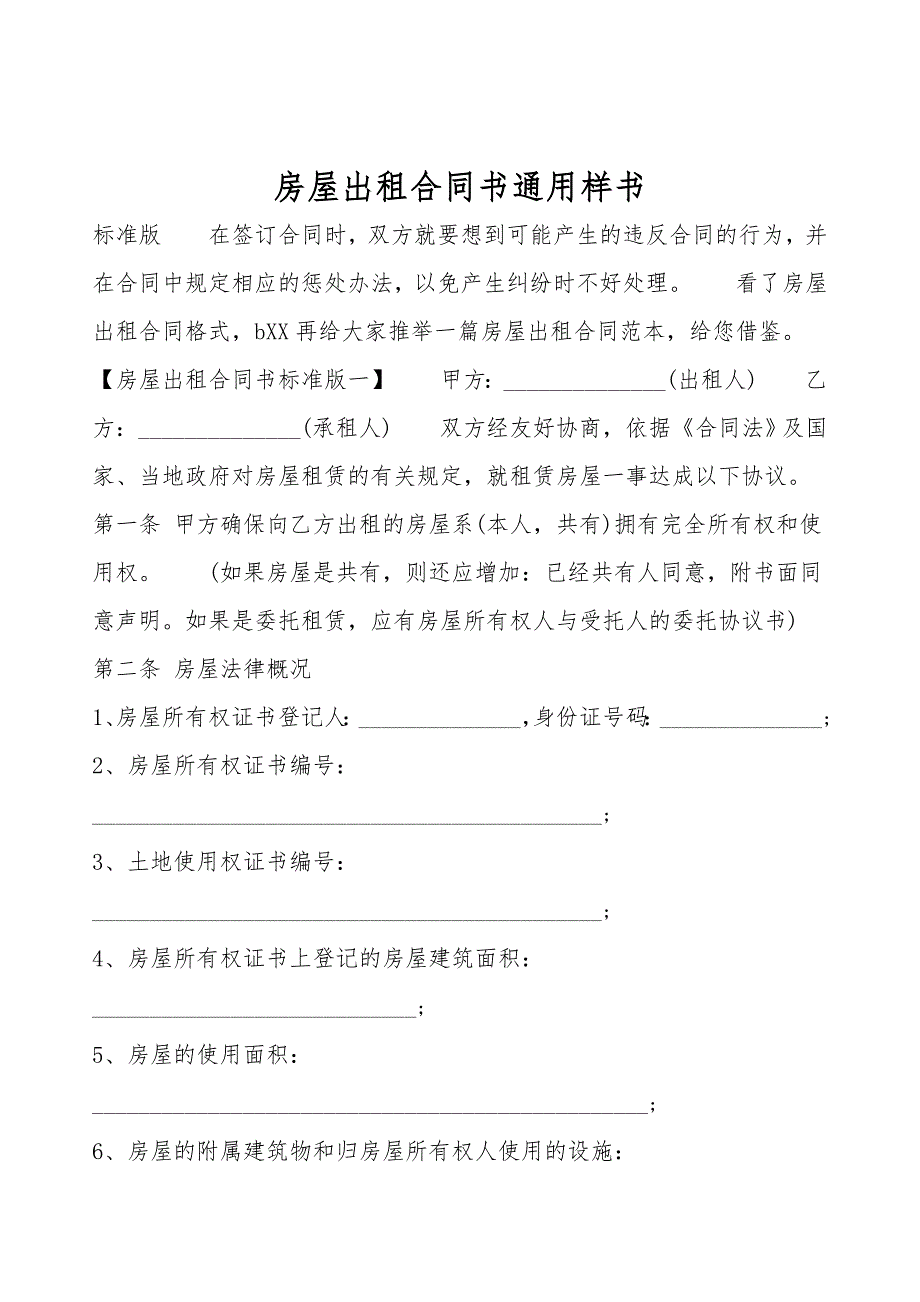 房屋出租合同书通用样书
标准版　　在签订合同时，双方就要想到可能产生的违反合同的行为，并
在合同中规定相应的惩处办法，以免产生纠纷时不好处理。　　看了房屋
出租合同格式，bXX再给大家推举一篇房屋出租合同范本，给您借鉴。
【房屋出租合同书标准版一】　　甲方：______________(出租人)　　乙
方：______________(承租人)　　双方经友好协商，依据《合同法》及国
家、当地政府对房屋租赁的有关规定，就租赁房屋一事达成以下协议。
第一条 甲方确保向乙方出租的房屋系(本人，共有)拥有完全所有权和使
用权。　　(如果房屋是共有，则还应增加：已经共有人同意，附书面同
意声明。如果是委托租赁，应有房屋所有权人与受托人的委托协议书)
第二条 房屋法律概况
1、房屋所有权证书登记人：______________，身份证号码：______________；
2、房屋所有权证书编号：
____________________________________________；
3、土地使用权证书编号：
____________________________________________；
4、房屋所有权证书上登记的房屋建筑面积：
____________________________；
5、房屋的使用面积：
________________________________________________；
6、房屋的附属建筑物和归房屋所有权人使用的设施：